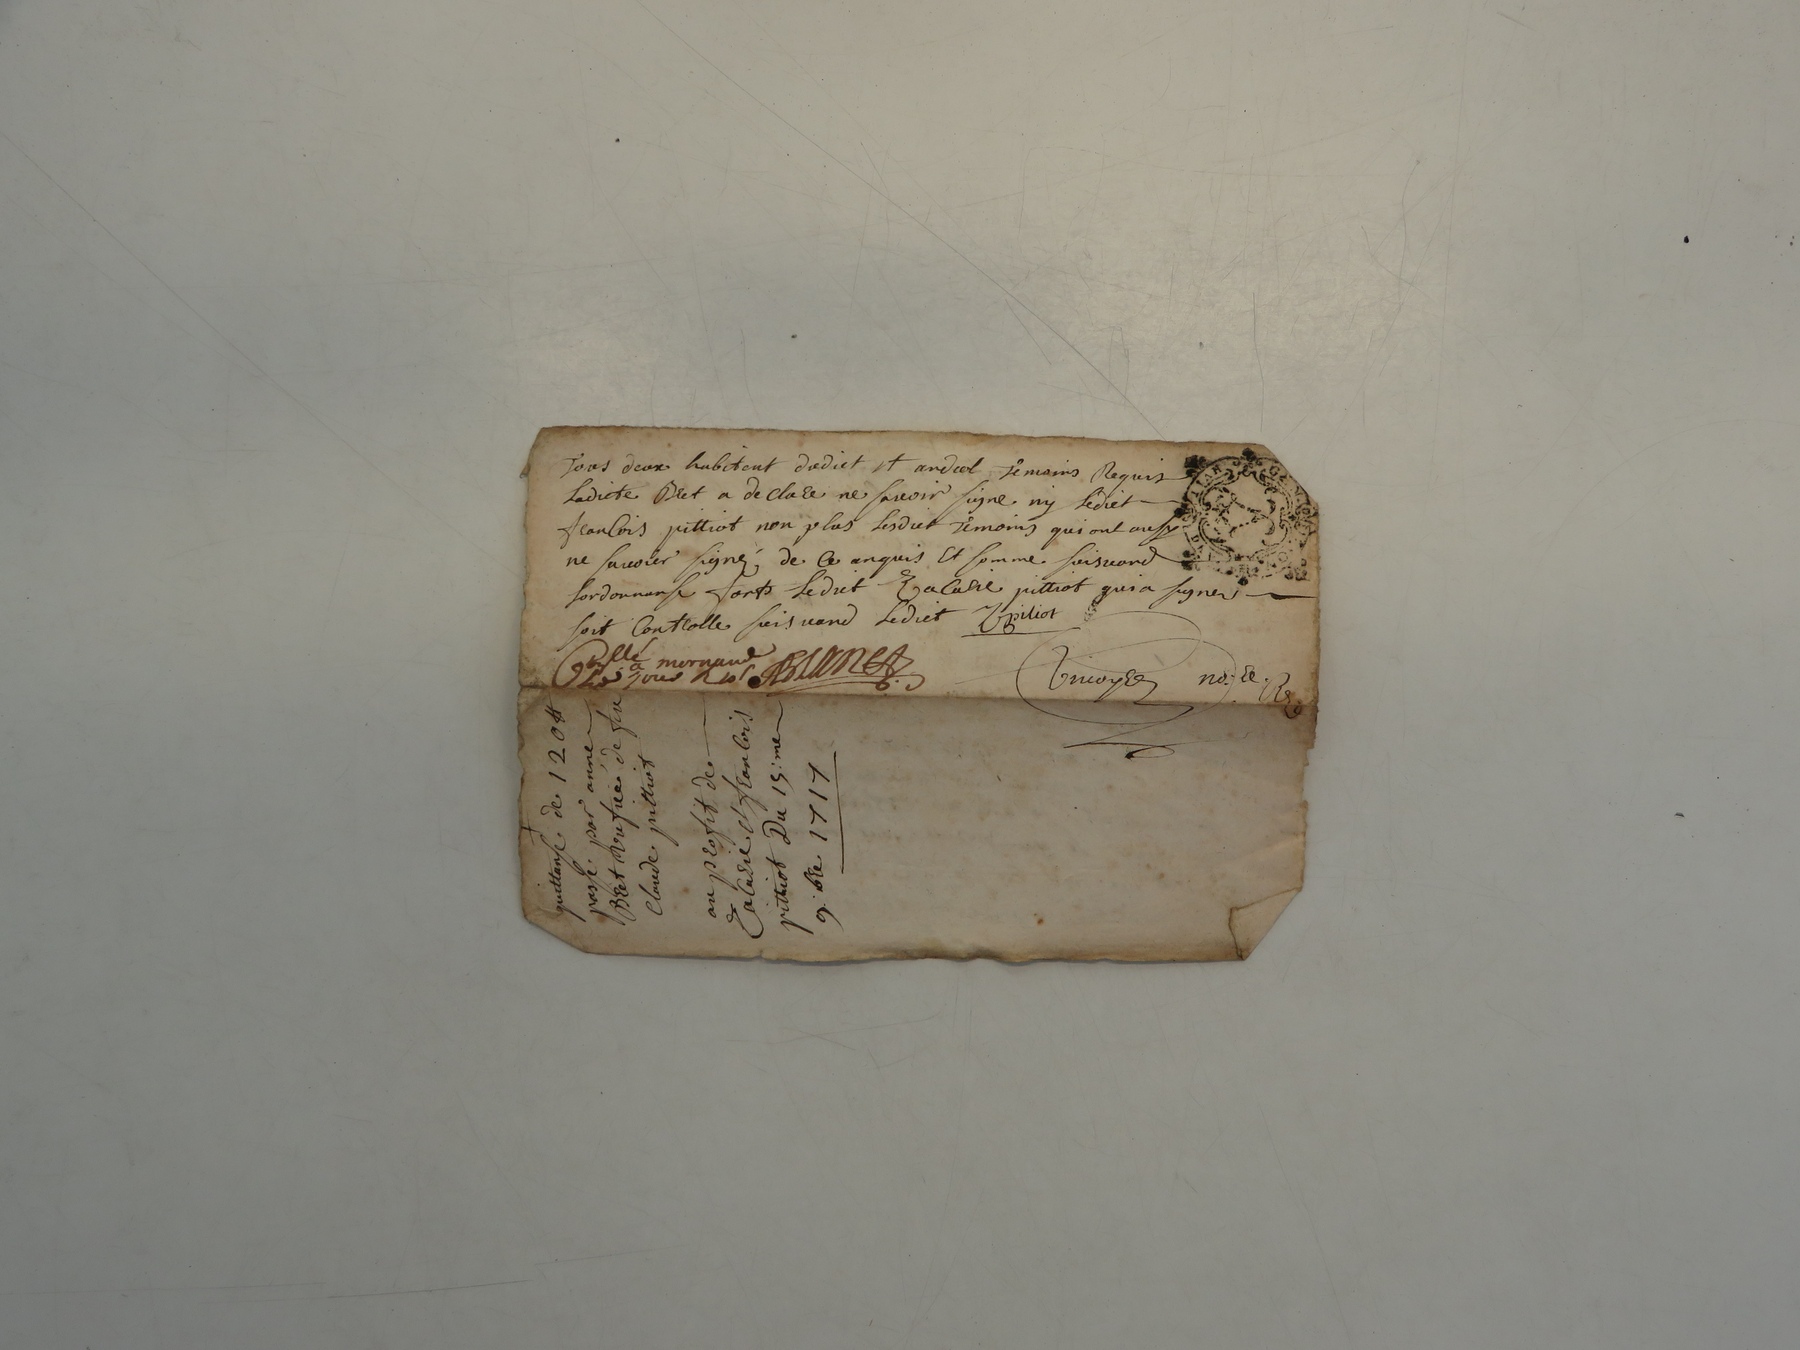 Tous deux habitent dudict st andeol témoins Requis
Ladicte Bret a declaré ne scavoir signe ny Ledict
francois pittiot non plus Lesdict témoins qui ont aussy
ne scavoir signé, de ce anquis Et somme suisvand
Lordonnanse forts Ledict Zacarie pittiot qui a signe
soit Controlle suisvand Ledict Zpitiot
Cllé a mornand
not.re R.
quittanse de 120 ₶
passé par anne
Bret vefve de feu
Claude pittiot
au profit de
Zacarie et francois
pittiot Du 15.me
9.bre 1717